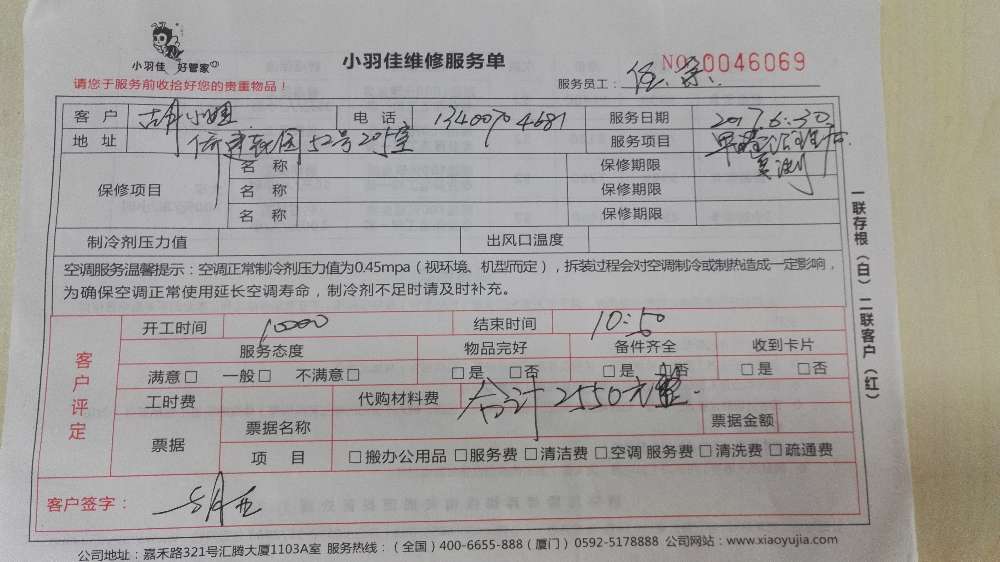 小羽佳 好管家
小羽佳维修服务单
NO 0046069
请您于服务前收拾好您的贵重物品！
服务员工：伍
客户 小姐 电话 13400704681 服务日期 2017.6.30
地址 52号205室 服务项目 甲醛治理后
保修项目 名称 保修期限
名称 保修期限
名称 保修期限
制冷剂压力值 出风口温度
空调服务温馨提示：空调正常制冷剂压力值为0.45mpa（视环境、机型而定），拆装过程会对空调制冷或制热造成一定影响，
为确保空调正常使用延长空调寿命，制冷剂不足时请及时补充。
客户评定
开工时间 10:00 结束时间 10:50
服务态度 物品完好 备件齐全 收到卡片
满意□ 一般□ 不满意□ □是 □否 □是 □否 □是 □否
工时费 代购材料费 合计2550元整
票据 票据名称 票据金额
项目 □搬办公用品 □服务费 □清洁费 □空调 服务费 □清洗费 □疏通费
客户签字：
公司地址：嘉禾路321号汇腾大厦1103A室 服务热线：（全国）400-6655-888（厦门）0592-5178888 公司网站：www.xiaoyujia.com
一联存根（白） 二联客户（红）